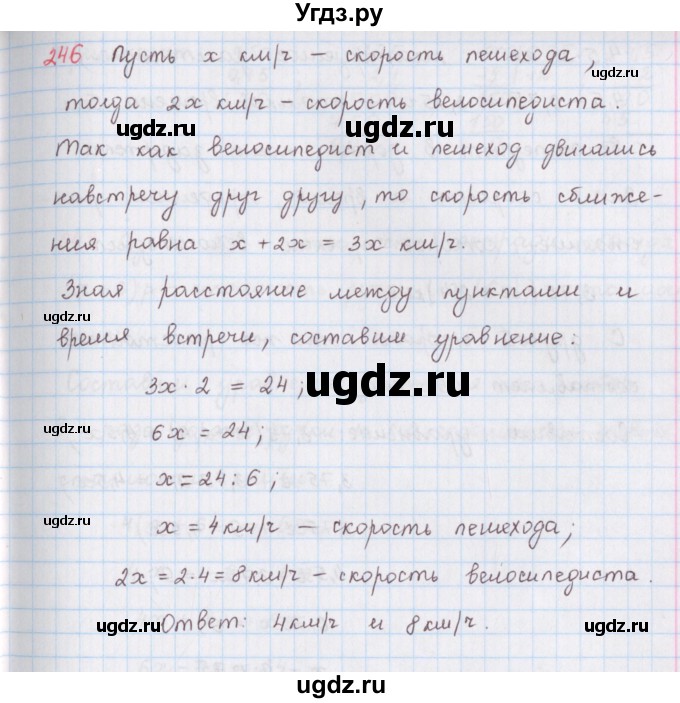 Угдз.ру
246 Пусть x км/ч – скорость пешехода,
тогда 2x км/ч – скорость велосипедиста.
ugdz.ru ugdz.ru
Так как велосипедист и пешеход двигались
навстречу друг другу, то скорость сближе-
ния равна x + 2x = 3x км/ч.
Зная расстояние между пунктами и
ugdz.ru
время встречи, составим уравнение:
3x · 2 = 24;
ugdz.ru
ugdz.ru
6x = 24;
x = 24 : 6;
ugdz.ru
x = 4 км/ч – скорость пешехода;
2x = 2·4 = 8 км/ч – скорость велосипедиста.
Ответ: 4 км/ч и 8 км/ч.
ugdz.ru ugdz.ru
ugdz.ru